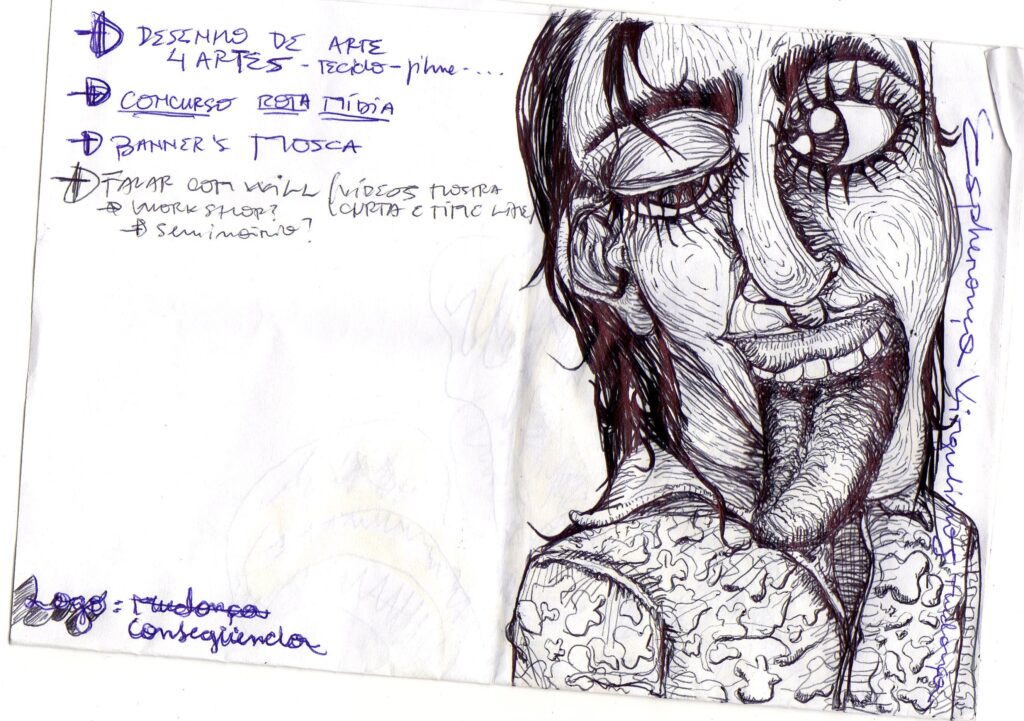 DESENHO DE ARTE
4 ARTES - TECIDO - filme - ...
CONCURSO ROTA MÍDIA
BANNER'S MOSCA
FALAR COM WILL (VÍDEOS MOSTRA
WORKSHOP? (CURTA E TIME LINE)
Seminário?
Logo = Mudança
Conseqüencia